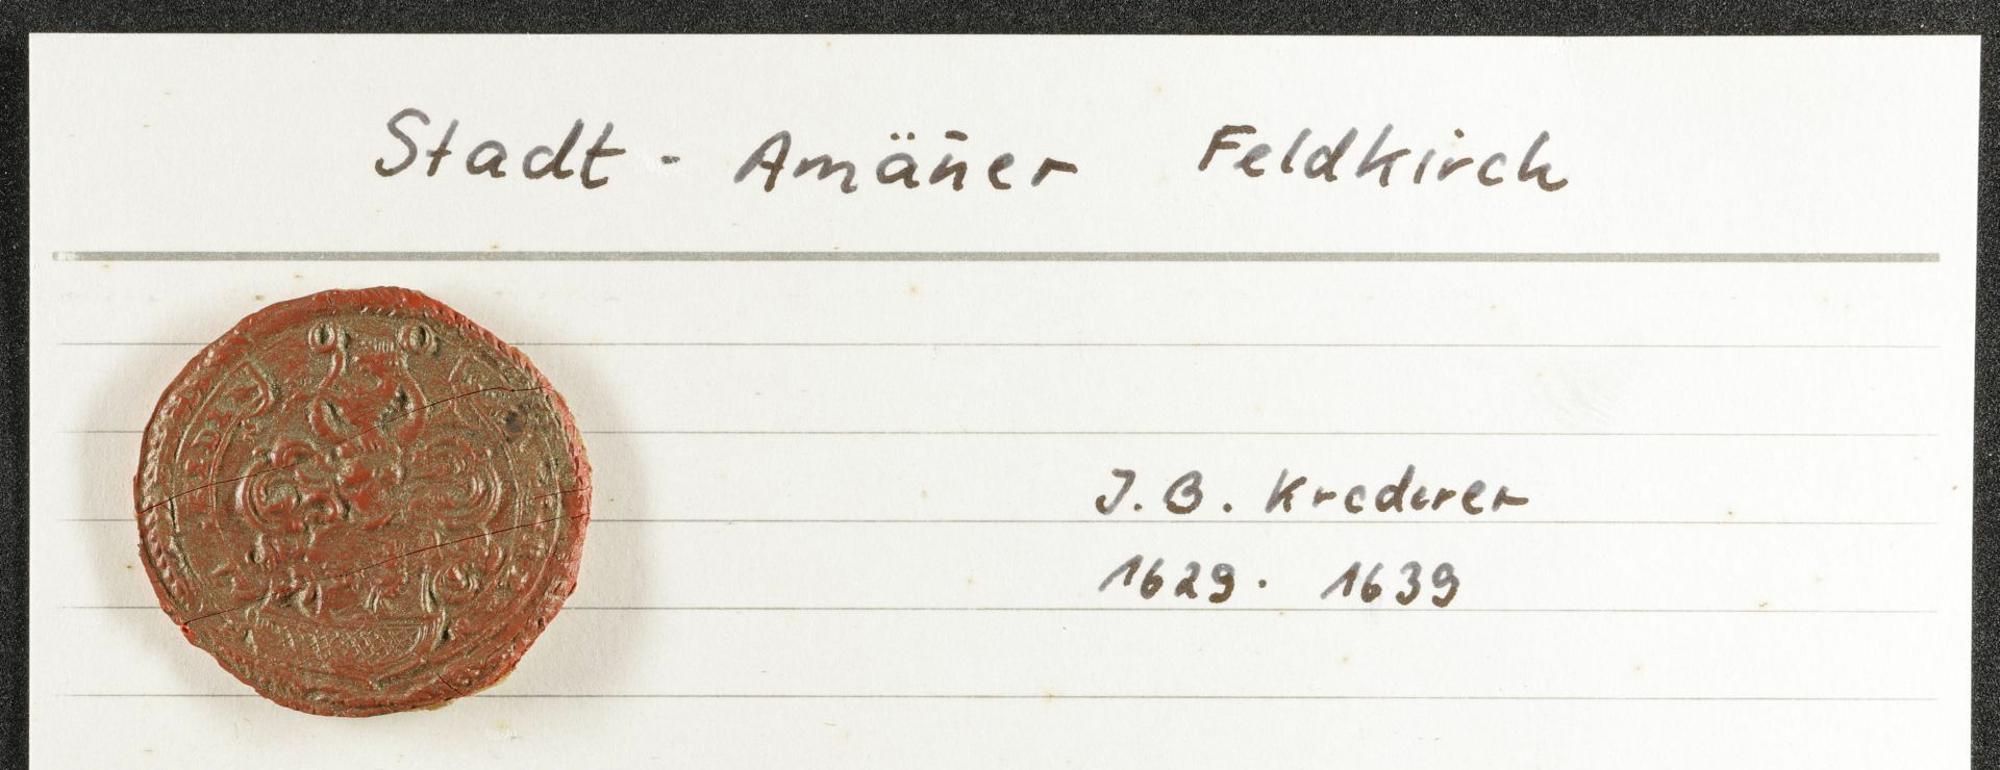 Stadt - Amän̄er Feldkirch
J. B. Krederer
1629. 1639